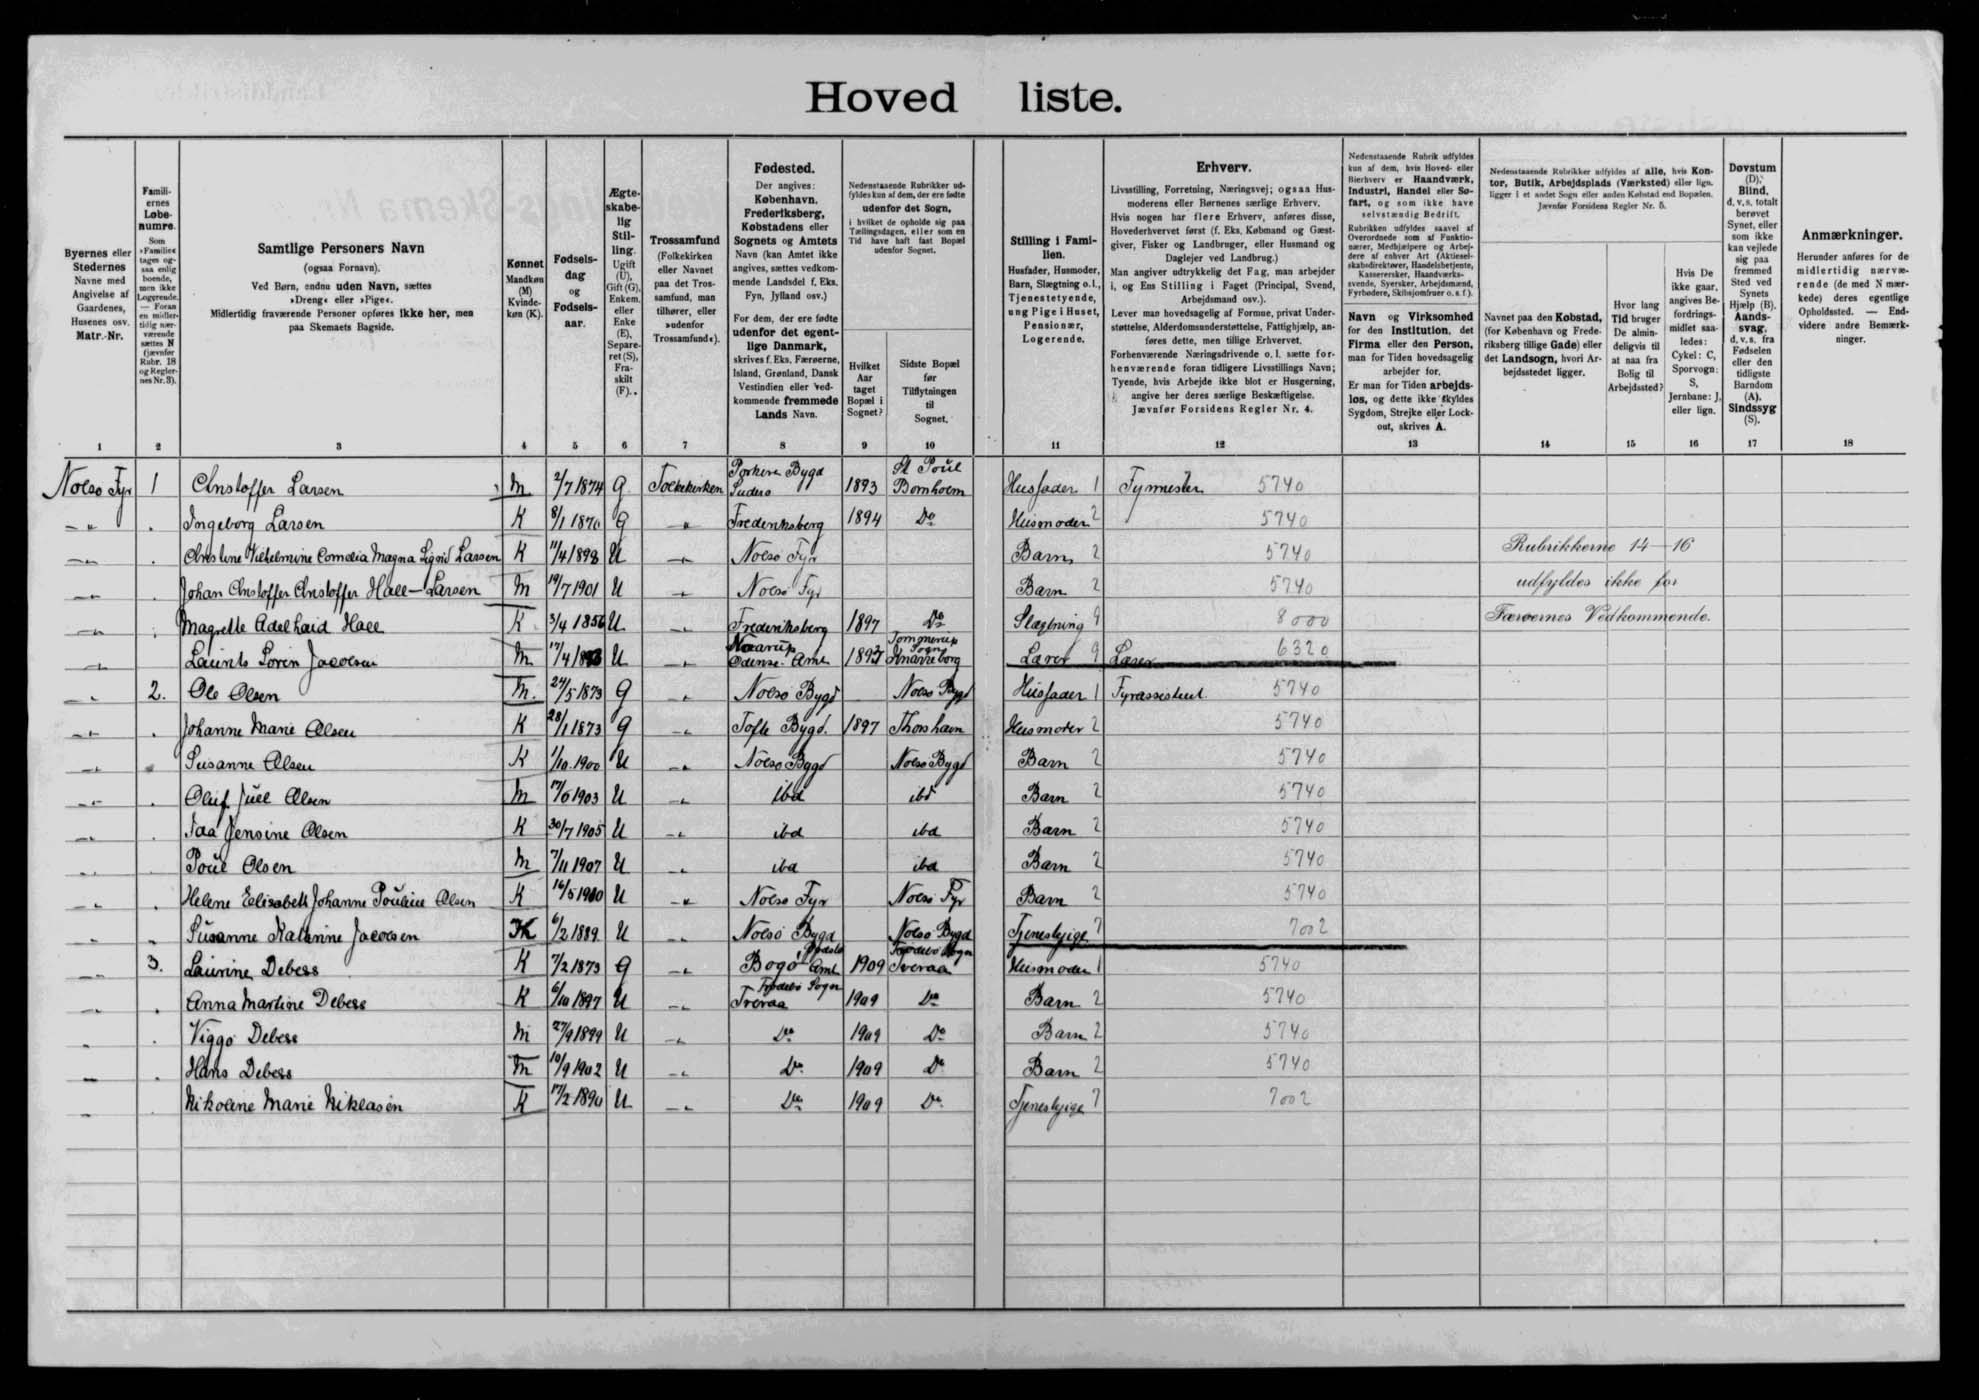 Hoved liste.
Byernes eller Stedernes Navne med Angivelse af Gaardenes, Husenes osv. Matr.-Nr.
Famili-ernes Løbe-numre.
Samtlige Personers Navn
(ogsaa Fornavn).
Ved Børn, endnu uden Navn, sættes
»Dreng« eller »Pige«.
Midlertidig fraværende Personer opføres ikke her, men
paa Skemaets Bagside.
Kønnet Mandkøn (M) Kvinde-køn (K).
Fødsels-dag og Fødsels-aar.
Ægte-skabe-lig Stil-ling. Ugift (U), Gift (G), Enkem. eller Enke (E), Separe-ret (S), Fra-skilt (F).
Trossamfund
(Folkekirken eller Navnet paa det Tros-samfund, man tilhører, eller »udenfor Trossamfund«).
Fødested.
Der angives:
København, Frederiksberg, Købstadens eller Sognets og Amtets Navn (kan Amtet ikke angives, sættes vedkom-mende Landsdel f. Eks. Fyn, Jylland osv.)
For dem, der ere fødte udenfor det egent-lige Danmark, skrives f. Eks. Færøerne, Island, Grønland, Dansk Vestindien eller Ved-kommende fremmede Lands Navn.
Nedenstaaende Rubrikker ud-fyldes kun af dem, der ere fødte udenfor det Sogn, i hvilket de opholde sig paa Tællingsdagen, eller som en Tid have haft fast Bopæl udenfor Sognet.
Hvilket Aar taget Bopæl i Sognet?
Sidste Bopæl før Tilflytningen til Sognet.
Stilling i Fami-lien.
Husfader, Husmoder, Barn, Slægtning o. l., Tjenestetyende, ung Pige i Huset, Pensionær, Logerende.
Erhverv.
Livsstilling, Forretning, Næringsvej; ogsaa Hus-moderens eller Børnenes særlige Erhverv.
Hvis nogen har flere Erhverv, anføres disse, Hovederhvervet først (f. Eks. Købmand og Gæst-giver, Fisker og Landbruger, eller Husmand og Daglejer ved Landbrug.)
Man angiver udtrykkelig det Fag, man arbejder i, og Ens Stilling i Faget (Principal, Svend, Arbejdsmand osv.).
Lever man hovedsagelig af Formue, privat Under-støttelse, Alderdomsunderstøttelse, Fattighjælp, an-føres dette, men tillige Erhvervet.
Forhenværende Næringsdrivende o. l. sætte for-henværende foran tidligere Livsstillings Navn; Tyende, hvis Arbejde ikke blot er Husgerning, angive her deres særlige Beskæftigelse.
Jævnfør Forsidens Regler Nr. 4.
Nedenstaaende Rubrik udfyldes kun af dem, hvis Hoved- eller Bierhverv er Haandværk, Industri, Handel eller Sø-fart, og som ikke have selvstændig Bedrift.
Navn og Virksomhed for den Institution, det Firma eller den Person, man for Tiden hovedsagelig arbejder for.
Er man for Tiden arbejds-løs, og dette ikke skyldes Sygdom, Strejke eller Lock-out, skrives A.
Nedenstaaende Rubrikker udfyldes af alle, hvis Kon-tor, Butik, Arbejdsplads (Værksted) eller lign. ligger i et andet Sogn eller anden Købstad end Bopælen.
Jævnfør Forsidens Regler Nr. 5.
Navnet paa den Købstad, (for København og Frede-riksberg tillige Gade) eller det Landsogn, hvori Ar-bejdsstedet ligger.
Hvor lang Tid bruger De almin-deligvis til at naa fra Bolig til Arbejdssted?
Hvis De ikke gaar, angives Be-fordrings-midlet saa-ledes: Cykel: C, Sporvogn: S, Jernbane: J, eller lign.
Døvstum (D), Blind, d. v. s. totalt berøvet Synet, eller som ikke kan vejlede sig paa fremmed Sted ved Synets Hjælp (B). Aands-svag, d. v. s. fra Fødselen eller den tidligste Barndom (A). Sindssyg (S).
Anmærkninger.
Herunder anføres for de midlertidig nærvæ-rende (de med N mær-kede) deres egentlige Opholdssted. — End-videre andre Bemærk-ninger.
1 2 3 4 5 6 7 8 9 10 11 12 13 14 15 16 17 18
Nolsø Fyr 1 Christoffer Larsen M 2/7 1874 G Folkekirken Porkere Bygd Suderø 1893 St Poul Bornholm Husfader 1 Fyrmester 5740
Ingeborg Larsen K 8/1 1870 G Frederiksberg 1894 Do Husmoder 2 5740
Christine Vilhelmine Cornelia Magna Sigrid Larsen K 11/4 1898 U Nolsø Fyr Barn 2 5740 Rubrikkerne 14—16
Johan Christoffer Christoffer Hall-Larsen M 19/7 1901 U Nolsø Fyr Barn 2 5740 udfyldes ikke for
Magrette Adelhaid Hall K 3/4 1856 U Frederiksberg 1897 Do Slægtning 9 8000 Færøernes Vedkommende.
Laurits Sørin Jacobsen M 17/4 U Odense Amt Tommerup Sogn Knarreborg Lærer 9 Lærer 6320
2. Ole Olsen M. 24/5 1873 G Nolsø Bygd Nolsø Bygd Husfader 1 Fyrassistent 5740
Johanne Marie Olsen K 28/1 1873 G Tofte Bygd. 1897 Thorshavn Husmoder 2 5740
Susanne Olsen K 1/10 1900 U Nolsø Bygd Nolsø Bygd Barn 2 5740
Oluf Juel Olsen M 17/6 1903 U ibd ibd Barn 2 5740
Jensine Olsen K 30/7 1905 U ibd ibd Barn 2 5740
Poul Olsen M 7/11 1907 U ibd ibd Barn 2 5740
Helene Elisabeth Johanne Pouline Olsen K 16/5 1910 U Nolsø Fyr Nolsø Fyr Barn 2 5740
Susanne Katrine Jacobsen K 6/2 1889 U Nolsø Bygd Nolsø Bygd Tjenestpige 7 7002
3. Laurine Debess K 7/2 1873 G Bogø Amt 1909 Frodebø Sogn Tveraa Husmoder 1 5740
Anna Martine Debess K 6/10 1897 U Frodebø Sogn Tveraa 1909 Do Barn 2 5740
Viggo Debess M 27/9 1899 U Do 1909 Do Barn 2 5740
Hans Debess M 10/9 1902 U Do 1909 Do Barn 2 5740
Nikoline Marie Niklasen K 17/2 1890 U Do 1909 Do Tjenestpige 7 7002